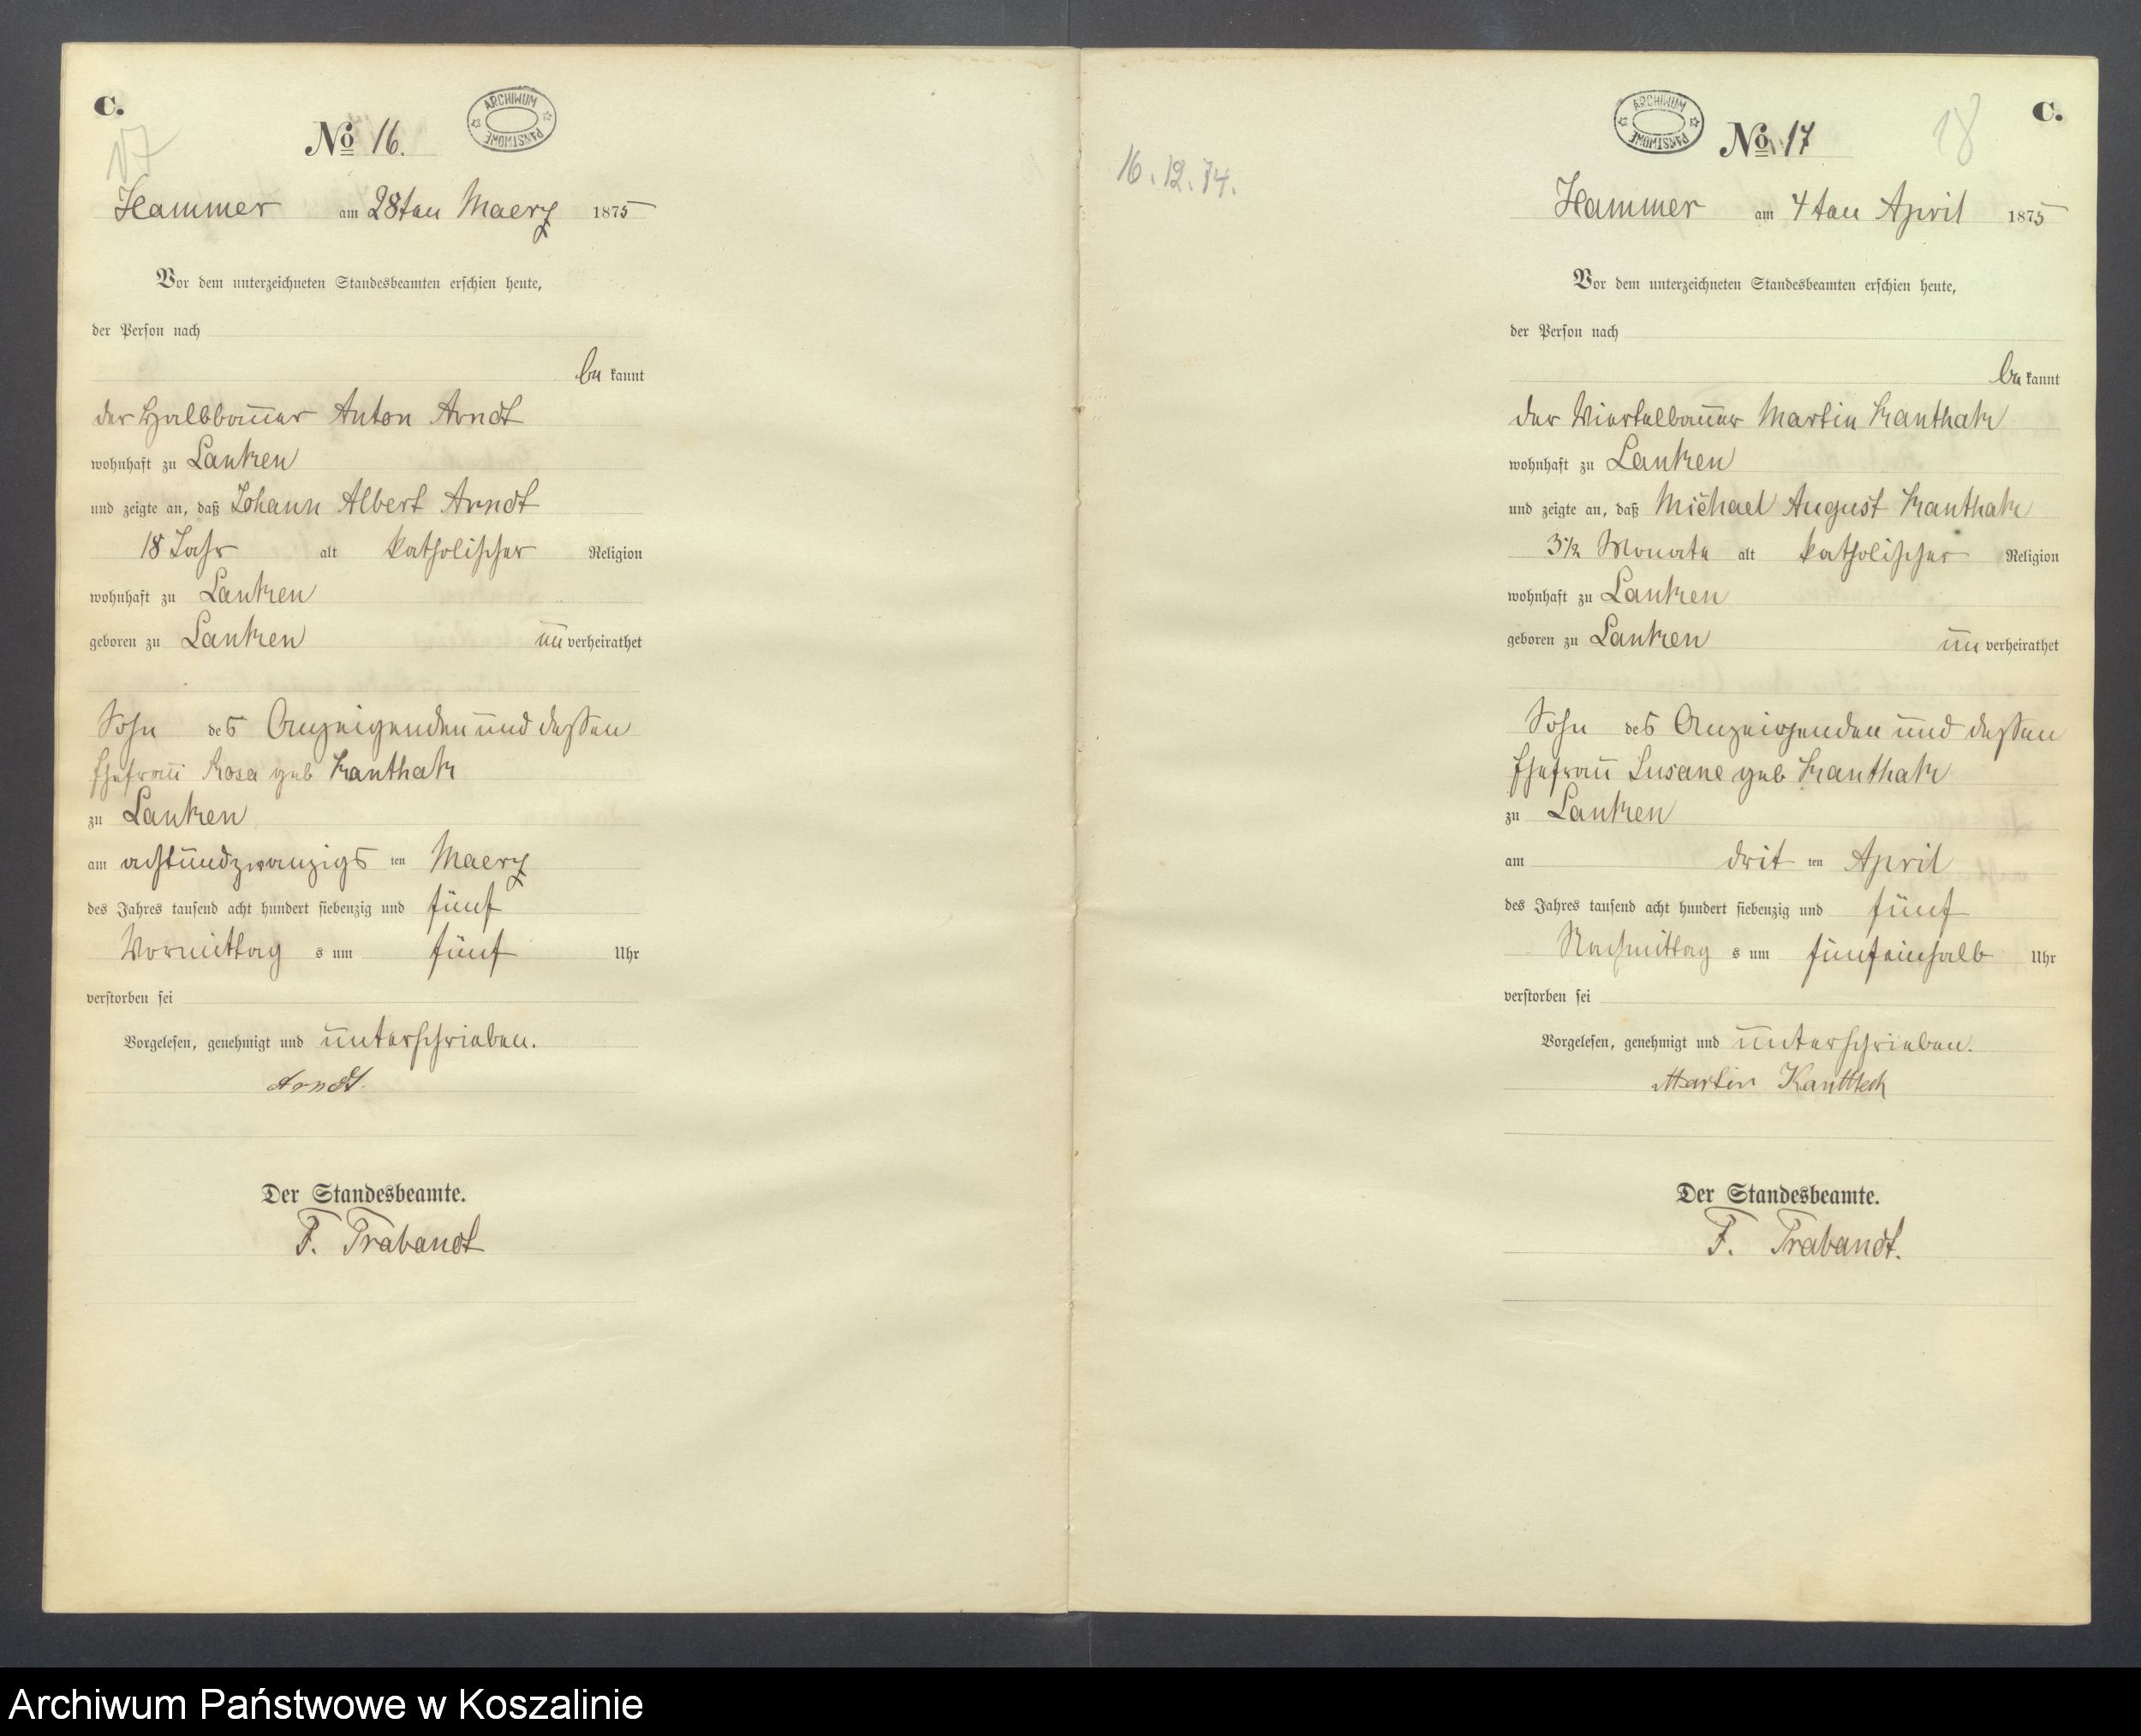 C.
17
No 16.
ARCHIWUM PAŃSTWOWE
Hammer am 28ten Maerz 1875
Vor dem unterzeichneten Standesbeamten erschien heute,
der Person nach
be kannt
der Halbbauer Anton Arndt
wohnhaft zu Lanken
und zeigte an, daß Johann Albert Arndt
18 Jahr alt katholischer Religion
wohnhaft zu Lanken
geboren zu Lanken un verheirathet
Sohn des Anzeigenden und dessen
Ehefrau Rosa geb Kanthak
zu Lanken
am achtundzwanzigs ten Maerz
des Jahres tausend acht hundert siebenzig und fünf
Vormittag s um fünf Uhr
verstorben sei
Vorgelesen, genehmigt und unterschrieben.
Arndt.
Der Standesbeamte.
F. Trabandt
16.12.74.
C.
18
ARCHIWUM PAŃSTWOWE
No 17
Hammer am 4ten April 1875
Vor dem unterzeichneten Standesbeamten erschien heute,
der Person nach
be kannt
der Viertelbauer Martin Kanthak
wohnhaft zu Lanken
und zeigte an, daß Michael August Kanthak
3 1/2 Monate alt katholischer Religion
wohnhaft zu Lanken
geboren zu Lanken un verheirathet
Sohn des Anzeigenden und dessen
Ehefrau Susane geb Kanthak
zu Lanken
am drit ten April
des Jahres tausend acht hundert siebenzig und fünf
Nachmittag s um fünfeinhalb Uhr
verstorben sei
Vorgelesen, genehmigt und unterschrieben.
Martin Kanttack
Der Standesbeamte.
F. Trabandt.
Archiwum Państwowe w Koszalinie